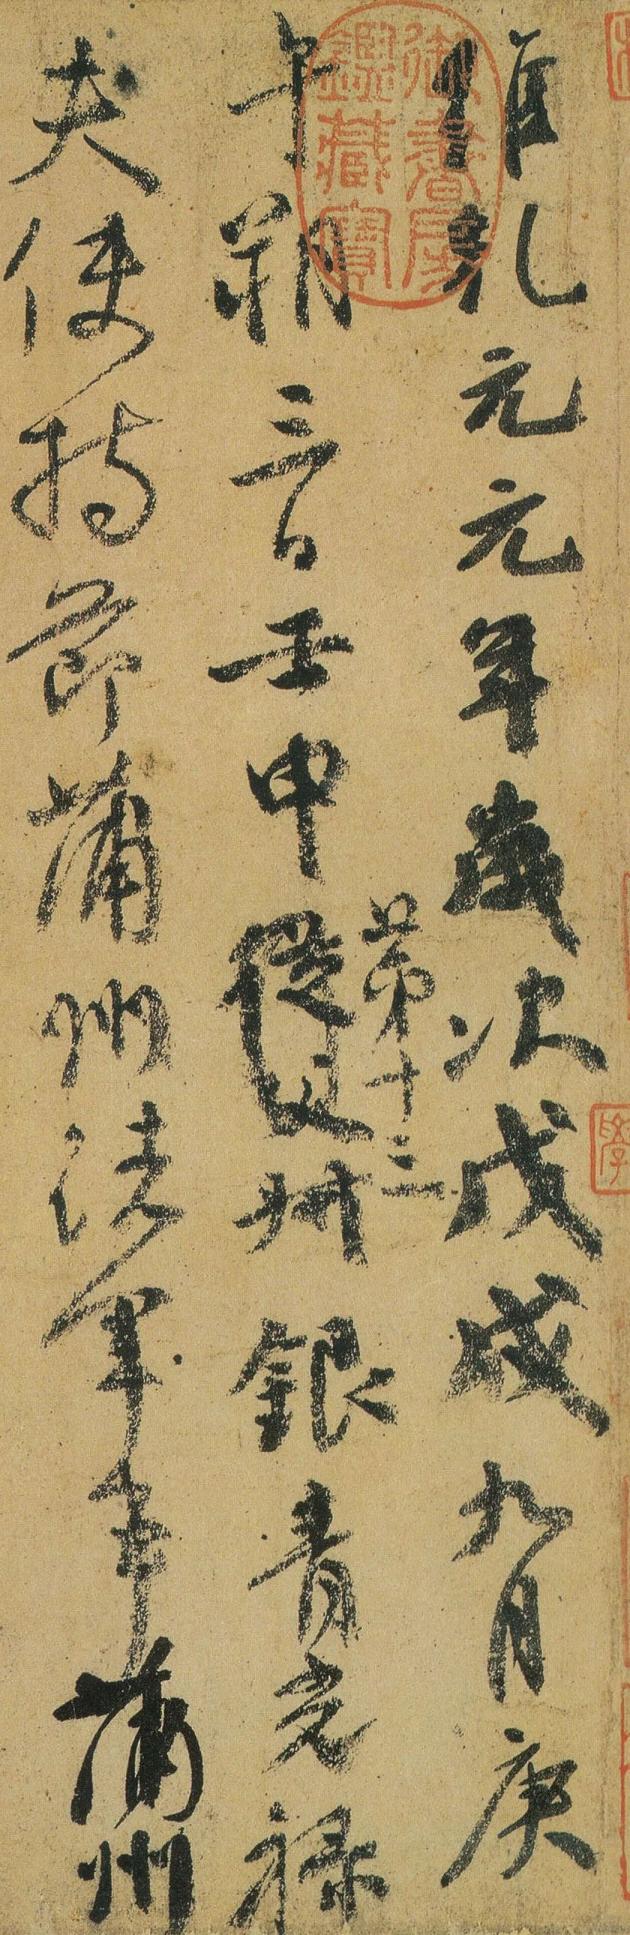 維乾元元年歲次戊戌九月庚
午朔三日壬申
第十三
從父
叔銀青光祿
夫使持節蒲州諸軍事蒲州
御書房鑑藏寶